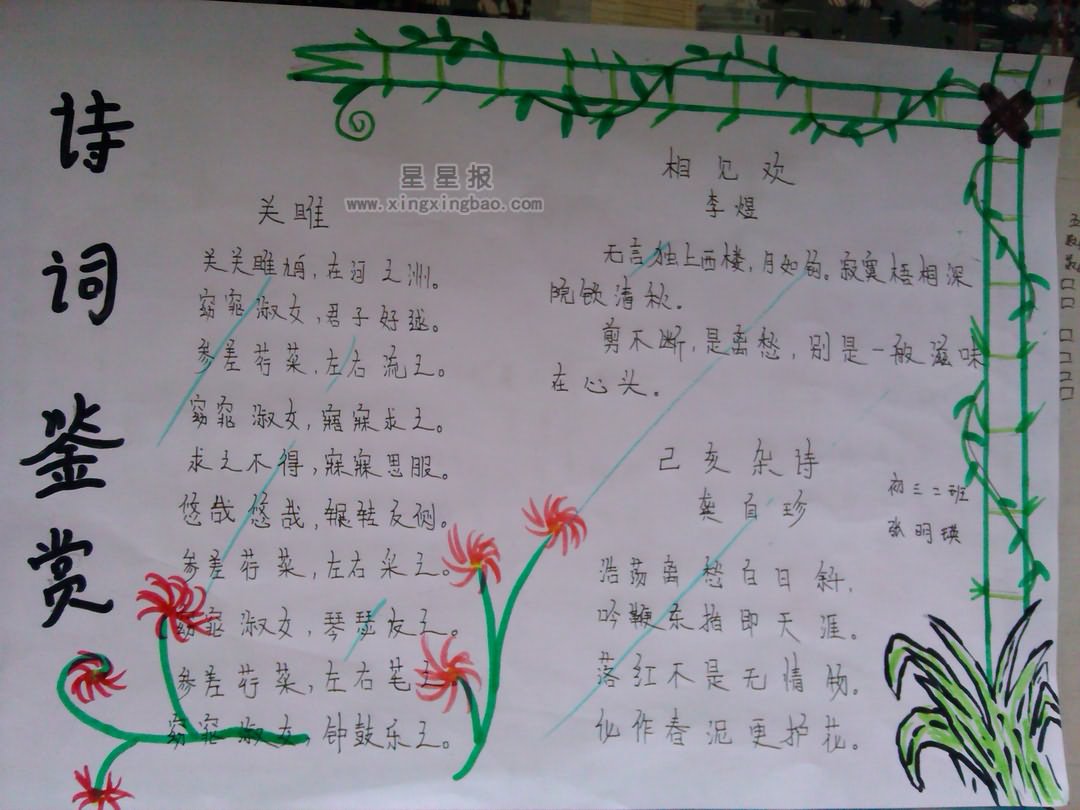 诗词鉴赏
星星报
www.xingxingbao.com
关雎
关关雎鸠，在河之洲。
窈窕淑女，君子好逑。
参差荇菜，左右流之。
窈窕淑女，寤寐求之。
求之不得，寐寐思服。
悠哉悠哉，辗转反侧。
参差荇菜，左右采之。
窈窕淑女，琴瑟友之。
参差荇菜，左右芼之
窈窕淑女，钟鼓乐之。
相见欢
李煜
无言独上西楼，月如钩。寂寞梧相深
院锁清秋。
剪不断，是离愁，别是一般滋味
在心头。
己亥杂诗
龚自珍
浩荡离愁白日斜，
吟鞭东指即天涯。
落红不是无情物。
化作春泥更护花。
初三二班
张明瑛